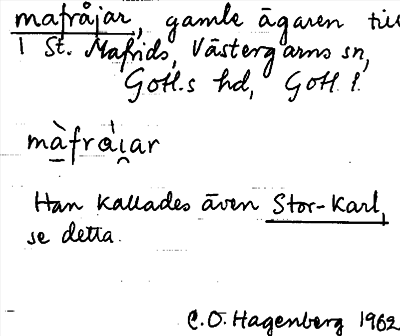 mafråjar, gamle ägaren till
1 St. Mafrids, Västergarns sn,
Gotl.s hd, Gotl. l.
màfrájar
Han kallades även Stor-Karl,
se detta.
C.O. Hagenberg 1962